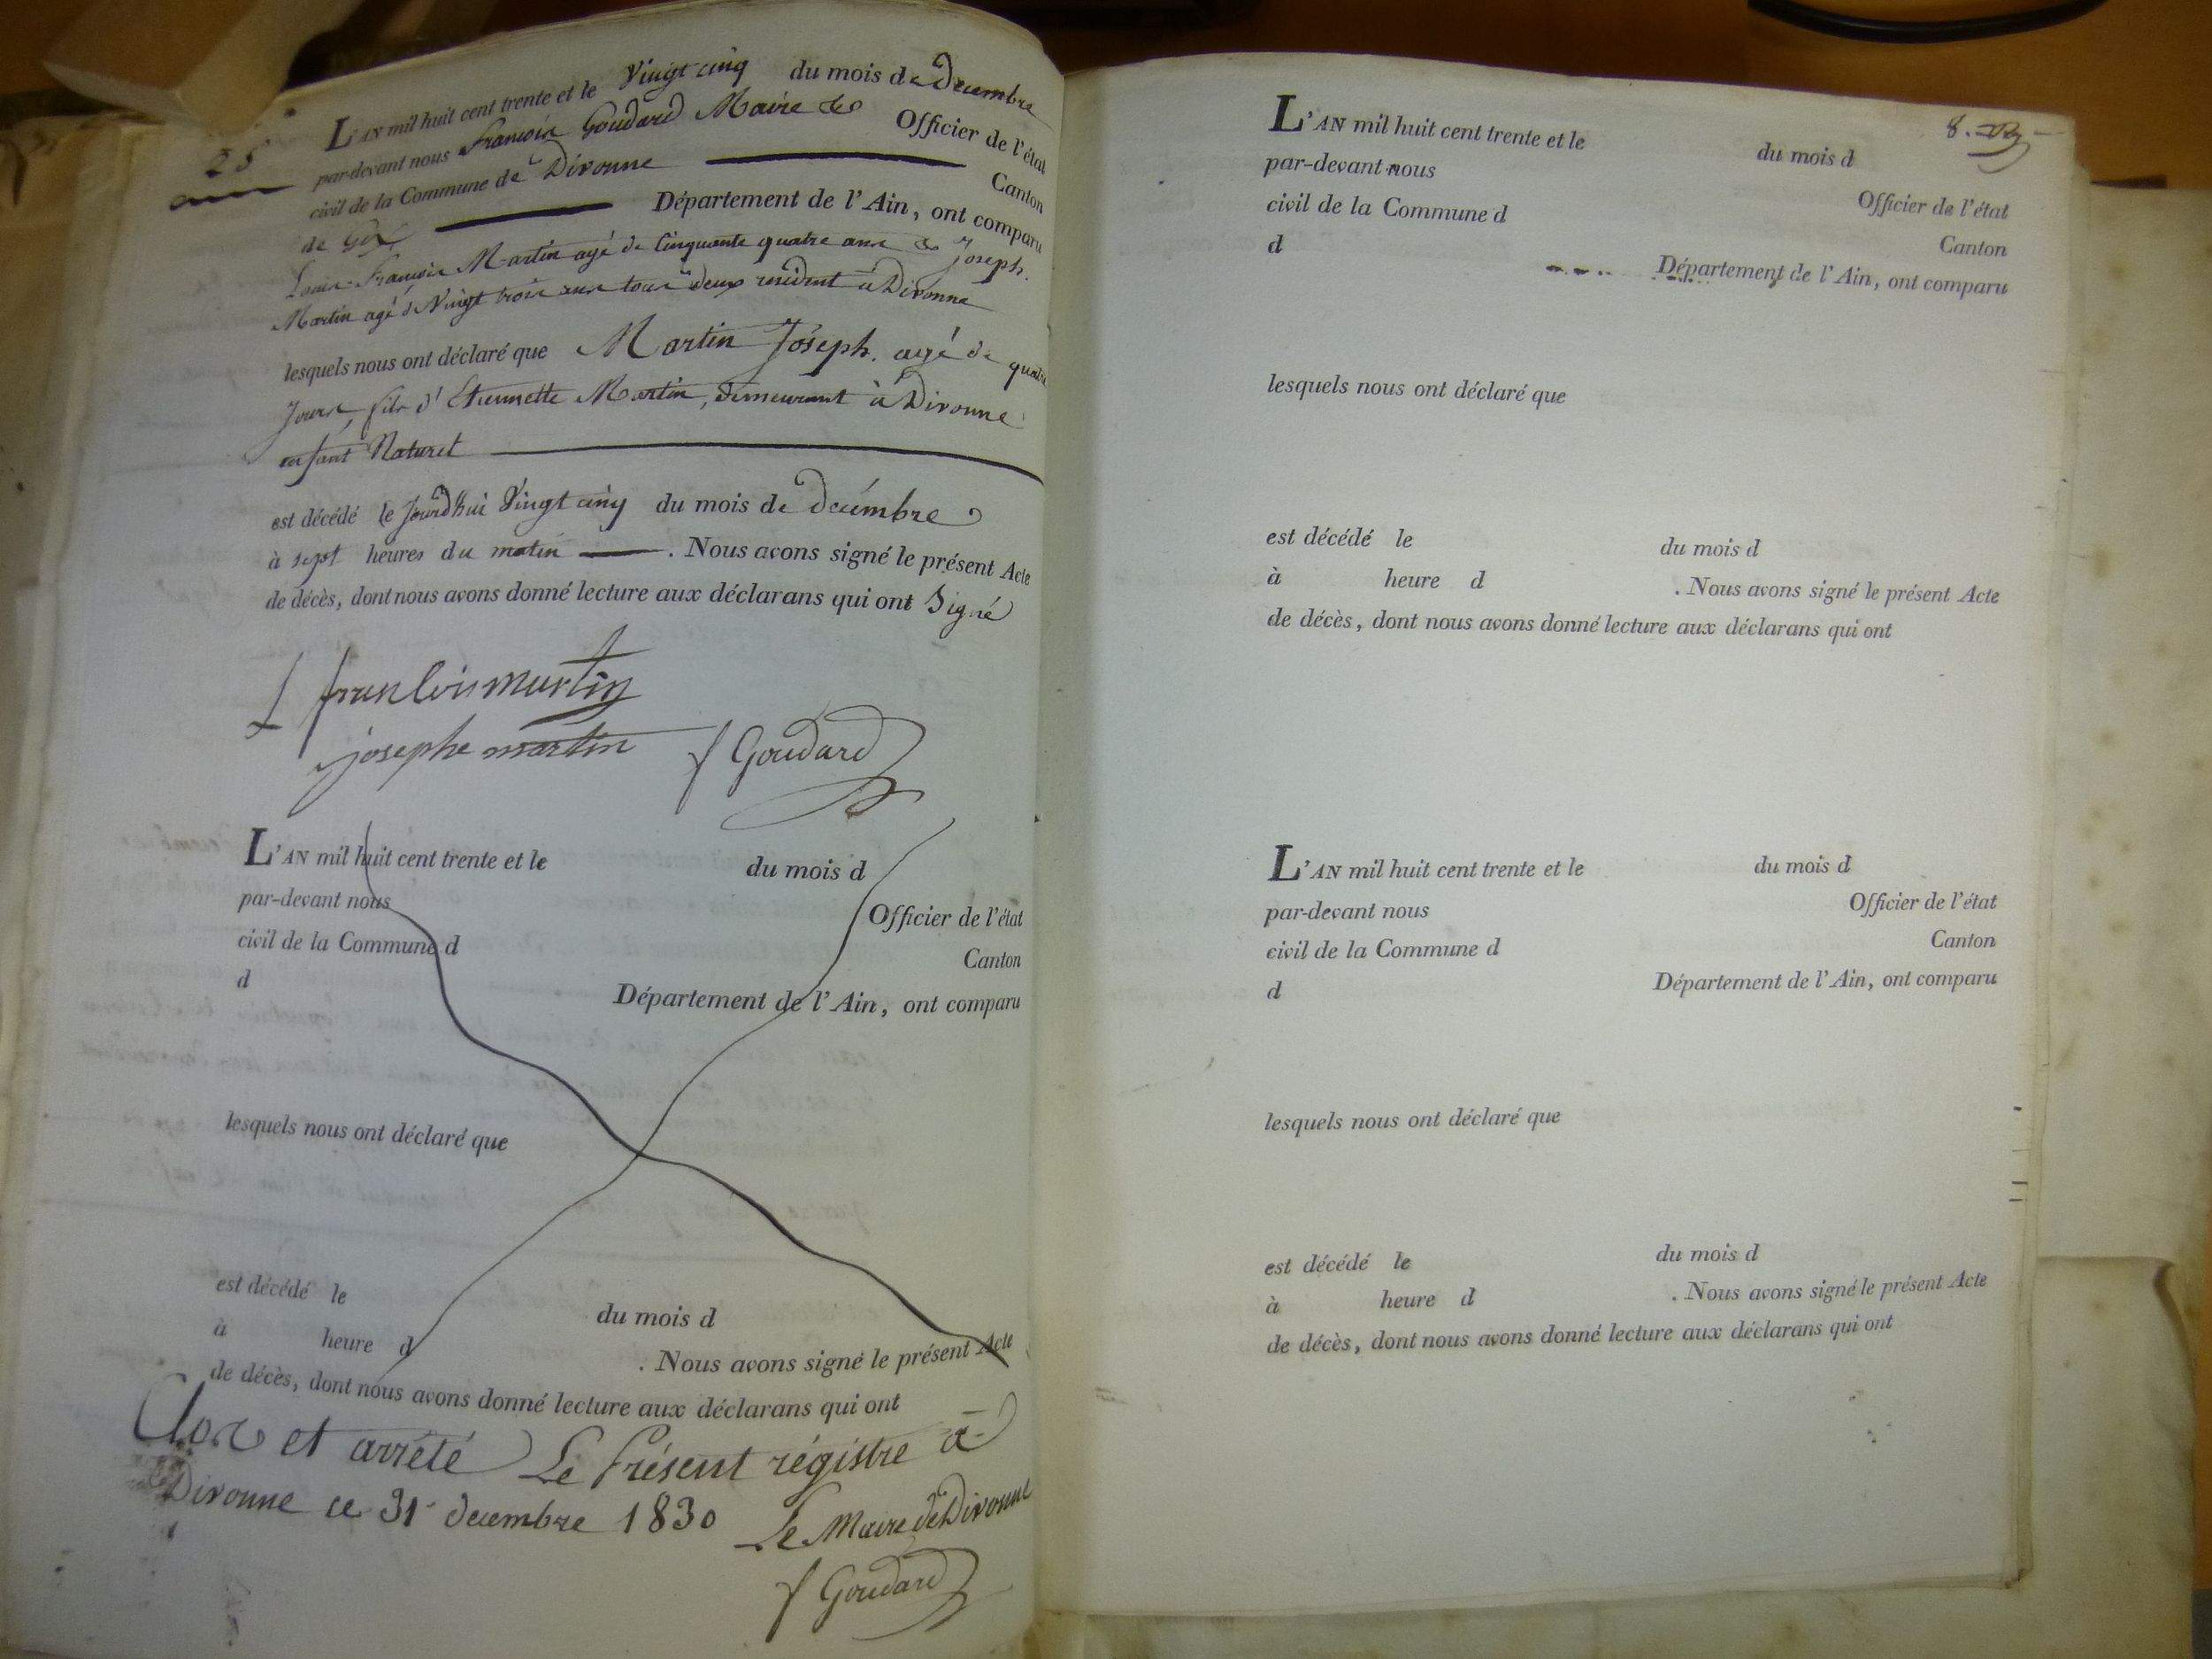 25
L'AN mil huit cent trente et le Vingt cinq du mois de Decembre
par-devant nous François Goudard Maire de Officier de l'état
civil de la Commune de Divonne Canton
de Gex Département de l'Ain, ont comparu
Louis François Martin agé de Cinquante quatre ans & Joseph
Martin agé de Vingt trois ans tous deux resident à Divonne
lesquels nous ont déclaré que Martin Joseph. agé de quatre
Jours, fils d'Etiennette Martin, demeurant à Divonne
enfant Naturel
est décédé le Jourd'hui Vingt cinq du mois de decémbre
à sept heures du matin . Nous avons signé le présent Acte
de décès, dont nous avons donné lecture aux déclarans qui ont Signé
L françois martin
josephe martin f Goudard
L'AN mil huit cent trente et le du mois d
par-devant nous Officier de l'état
civil de la Commune d Canton
d Département de l'Ain, ont comparu
lesquels nous ont déclaré que
est décédé le du mois d
à heure d . Nous avons signé le présent Acte
de décès, dont nous avons donné lecture aux déclarans qui ont
Clos et arrété Le Présent régistre à
Divonne ce 31 decembre 1830 Le Maire de Divonne
f Goudard
8.
L'AN mil huit cent trente et le du mois d
par-devant nous Officier de l'état
civil de la Commune d Canton
d Département de l'Ain, ont comparu
lesquels nous ont déclaré que
est décédé le du mois d
à heure d . Nous avons signé le présent Acte
de décès, dont nous avons donné lecture aux déclarans qui ont
L'AN mil huit cent trente et le du mois d
par-devant nous Officier de l'état
civil de la Commune d Canton
d Département de l'Ain, ont comparu
lesquels nous ont déclaré que
est décédé le du mois d
à heure d . Nous avons signé le présent Acte
de décès, dont nous avons donné lecture aux déclarans qui ont